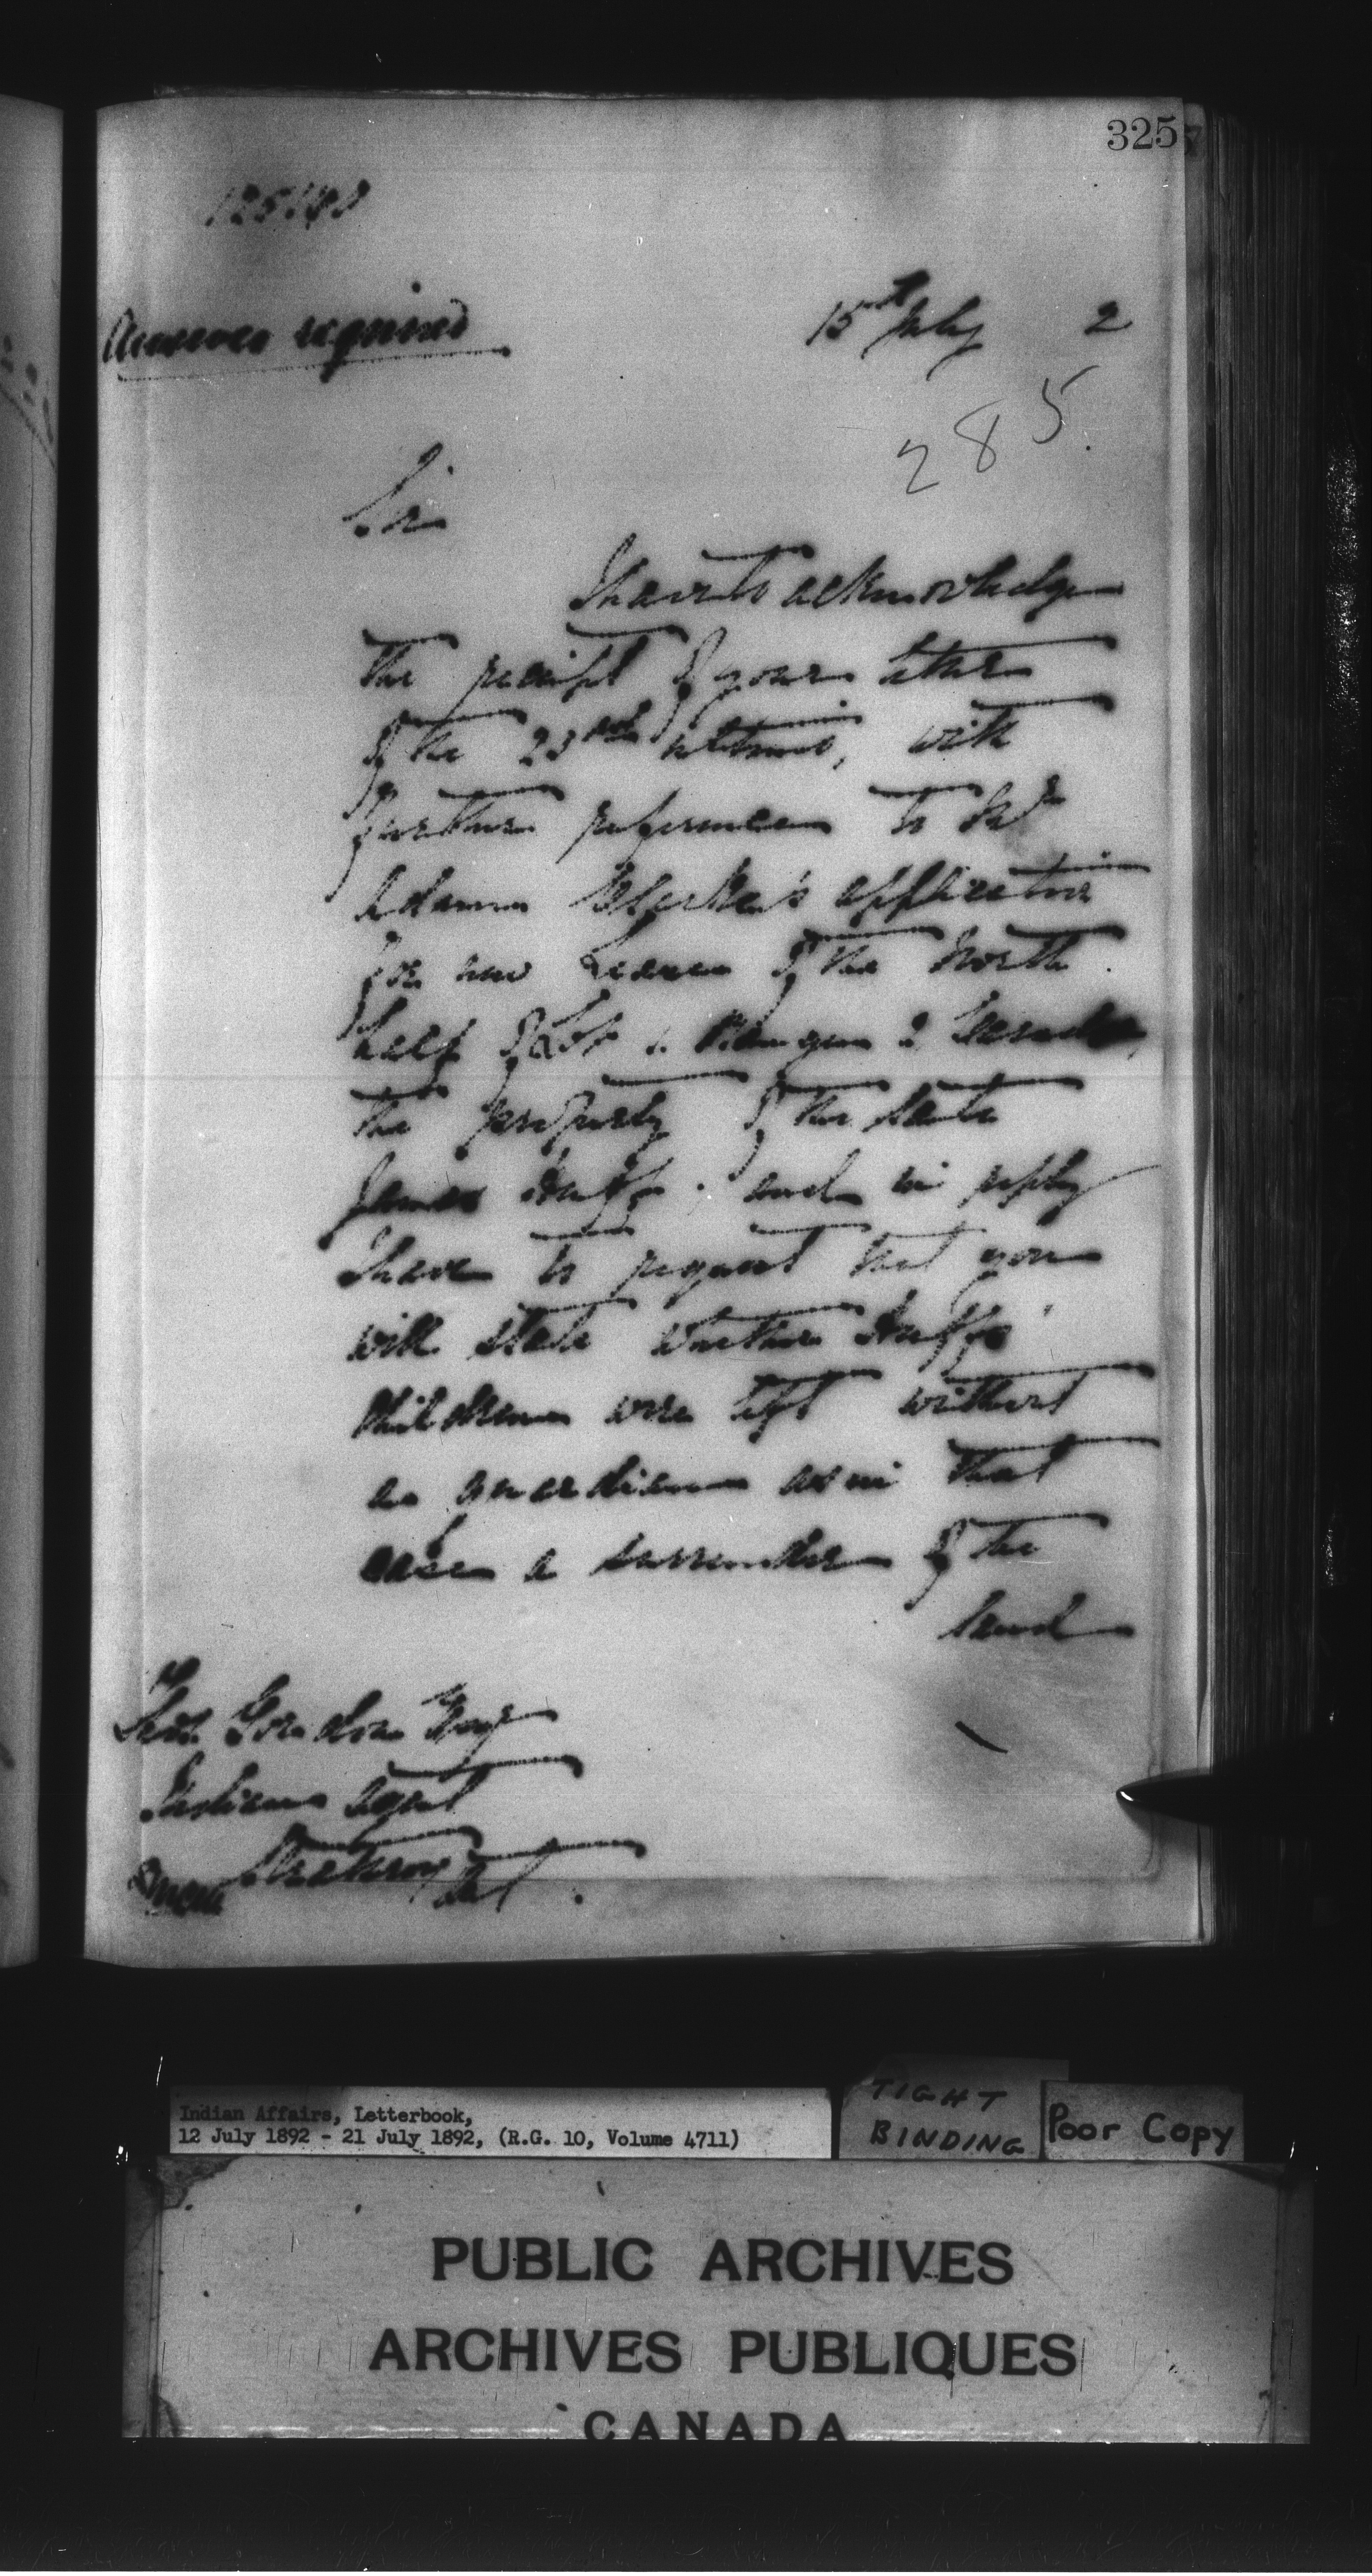 325
Answer required
15th July 2
285.
Sir
I have to acknowledge
the receipt of your letter
of the 23rd ultimo, with
further reference to Mr
Adam application
for new Lease of the North
half of Lot Range 2
the property of the late
James Huff. and in reply
I have to request that you
will state whether Huff's
children were left without
a guardian as in that
case a surrender of the
land
Thos. Gordon Esq
Indian Agent
Strathroy Ont.
Indian Affairs, Letterbook,
12 July 1892 - 21 July 1892, (R.G. 10, Volume 4711)
TIGHT
BINDING
Poor Copy
PUBLIC ARCHIVES
ARCHIVES PUBLIQUES
CANADA